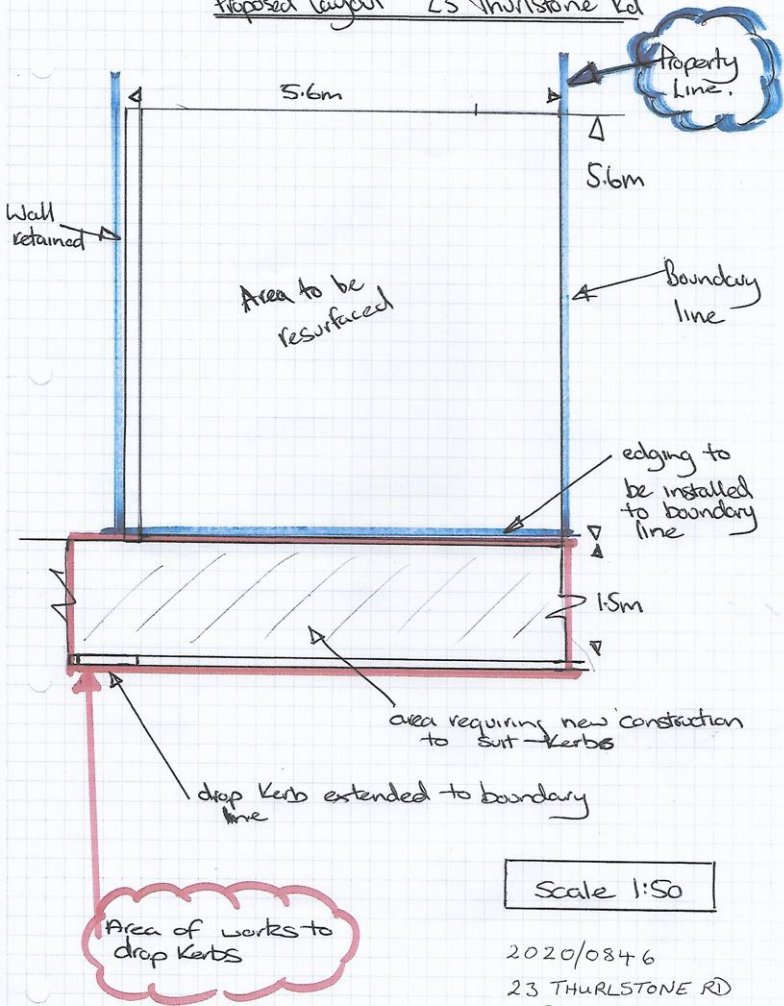 Proposed Layout 23 Thurlstone Rd
Property
Line.
5.6m
5.6m
Wall
retained
Area to be
resurfaced
Boundary
line
edging to
be installed
to boundary
line
1.5m
area requiring new construction
to suit kerbs
drop kerb extended to boundary
line
Area of works to
drop kerbs
Scale 1:50
2020/0846
23 THURLSTONE RD